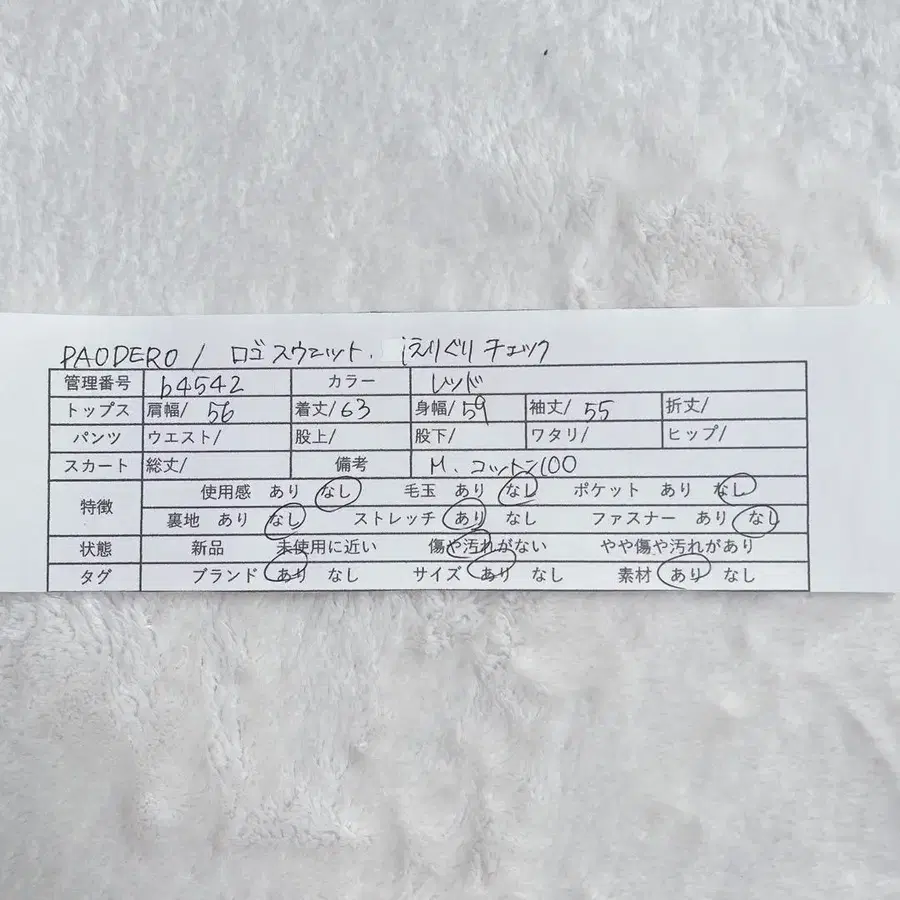 PAODERO / ロゴスウェット. えりぐりチェック
管理番号 b4542 カラー レッド
トップス 肩幅/ 56 着丈/ 63 身幅/ 59 袖丈/ 55 折丈/
パンツ ウエスト/ 股上/ 股下/ ワタリ/ ヒップ/
スカート 総丈/ 備考 M. コットン100
特徴 使用感 あり なし 毛玉 あり なし ポケット あり なし
裏地 あり なし ストレッチ あり なし ファスナー あり なし
状態 新品 未使用に近い 傷や汚れがない やや傷や汚れがあり
タグ ブランド あり なし サイズ あり なし 素材 あり なし